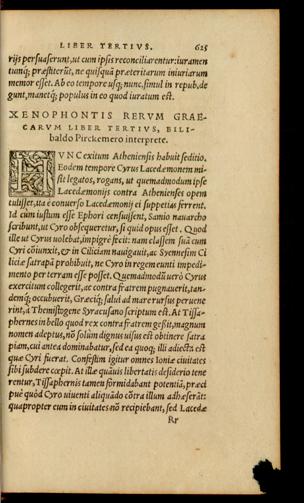 LIBER TERTIVS. 625
rijs persuaserunt, ut cum ipsis reconciliarentur: iuramen
tumq; præstiterũt, ne quisquã præteritarum iniuriarum
memor esset. Ab eo tempore usq; nunc, simul in repub. de
gunt, manetq; populus in eo quod iuratum est.
XENOPHONTIS RERVM GRAE-
CARVM LIBER TERTIVS, BILI-
baldo Pirckemero interprete.
HVNC exitum Atheniensis habuit seditio.
Eodem tempore Cyrus Lacedæmonem mi-
sit legatos, rogans, ut quemadmodum ipse
Lacedæmonijs contra Athenienses opem
tulisset, ita è conuerso Lacedæmonij ei suppetias ferrent.
Id cum iustum esse Ephori censuissent, Samio nauarcho
scribunt, ut Cyro obsequeretur, si quid opus esset. Quod
ille ut Cyrus uolebat, impigrè fecit: nam classem suã cum
Cyri cõiunxit, & in Ciliciam nauigauit, ac Syennesim Ci
liciæ satrapã prohibuit, ne Cyro in regem eunti impedi-
mento per terram esse posset. Quemadmodũ uerò Cyrus
exercitum collegerit, ac contra fratrem pugnauerit, tan-
demq; occubuerit, Græciq; salui ad mare rursus peruene
rint, à Themistogene Syracusano scriptum est. At Tissa-
phernes in bello quod rex contra fratrem gessit, magnum
nomen adeptus, nõ solùm dignus uisus est obtinere satra
piam, cui antea dominabatur, sed ea quoq; illi adiecta est
quæ Cyri fuerat. Confestim igitur omnes Ioniæ ciuitates
sibi subdere cœpit. At illæ quàuis libertatis desiderio tene
rentur, Tissaphernis tamen formidabant potentiã, præci
puè quòd Cyro uiuenti aliquãdo cõtra illum adhæserãt:
quapropter eum in ciuitates nõ recipiebant, sed Lacedæ
Rr